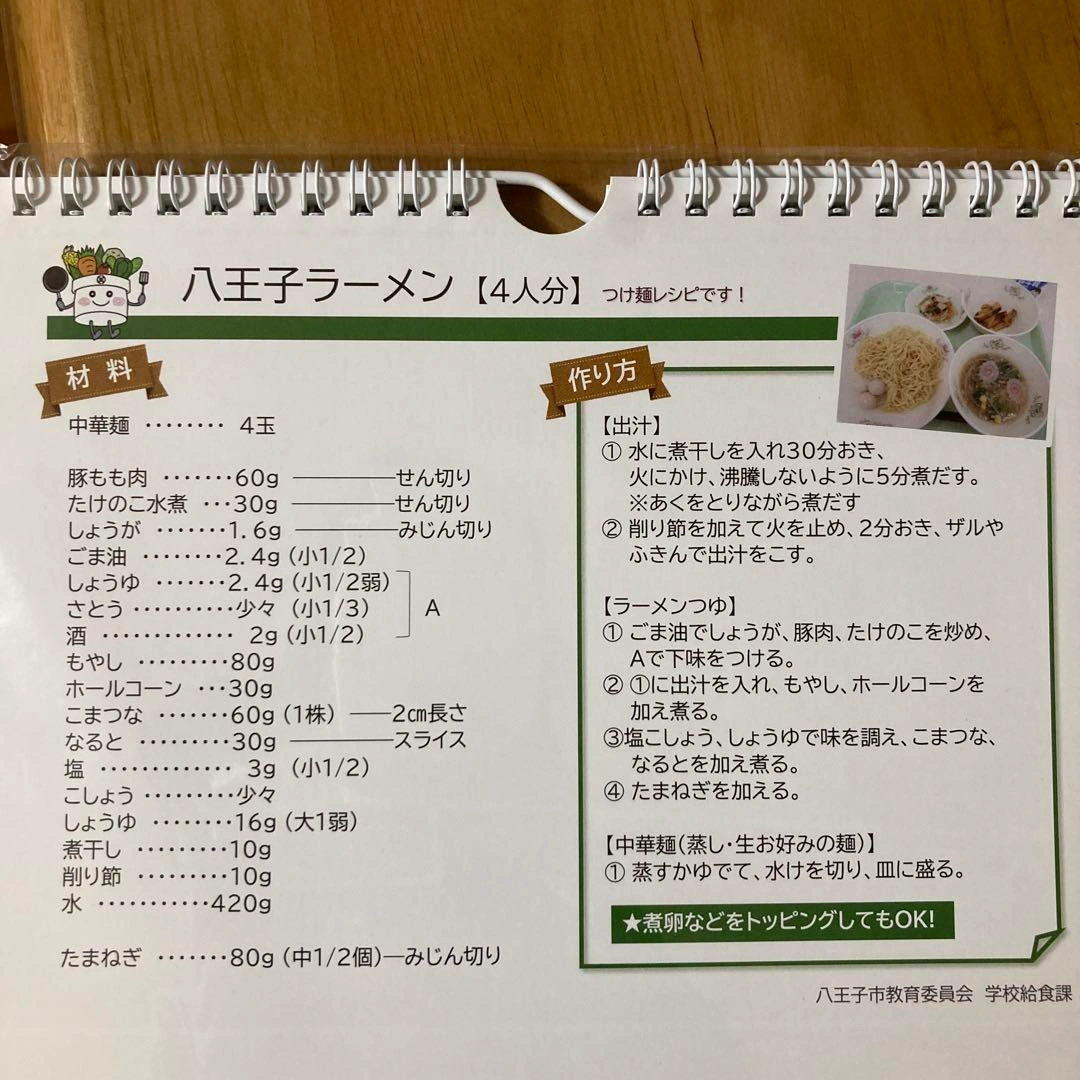 八王子ラーメン【4人分】 つけ麺レシピです！
材料
中華麺 ········ 4玉
豚もも肉 ·······60g ――――せん切り
たけのこ水煮 ···30g ――――せん切り
しょうが ·······1.6g ――――みじん切り
ごま油 ········2.4g（小1/2）
しょうゆ ·······2.4g（小1/2弱）
さとう ··········少々（小1/3） A
酒 ············· 2g（小1/2）
もやし ·········80g
ホールコーン ···30g
こまつな ·······60g（1株） ――2㎝長さ
なると ·········30g ――――スライス
塩 ············· 3g（小1/2）
こしょう ·········少々
しょうゆ ········16g（大1弱）
煮干し ·········10g
削り節 ·········10g
水 ···········420g
たまねぎ ·······80g（中1/2個）―みじん切り
作り方
【出汁】
① 水に煮干しを入れ30分おき、
火にかけ、沸騰しないように5分煮だす。
※あくをとりながら煮だす
② 削り節を加えて火を止め、2分おき、ザルや
ふきんで出汁をこす。
【ラーメンつゆ】
① ごま油でしょうが、豚肉、たけのこを炒め、
Aで下味をつける。
② ①に出汁を入れ、もやし、ホールコーンを
加え煮る。
③塩こしょう、しょうゆで味を調え、こまつな、
なるとを加え煮る。
④ たまねぎを加える。
【中華麺（蒸し・生お好みの麺）】
① 蒸すかゆでて、水けを切り、皿に盛る。
★煮卵などをトッピングしてもOK!
八王子市教育委員会 学校給食課